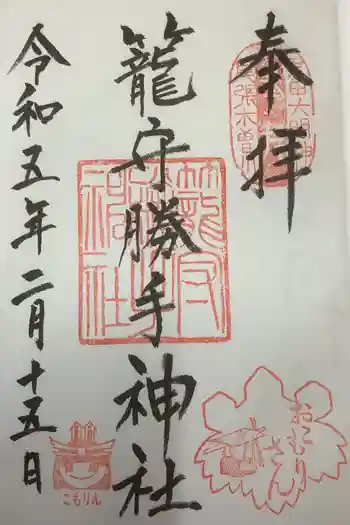 奉拝
籠守勝手神社
令和五年二月十五日
籠守
神社
おこもりさん
こもりん